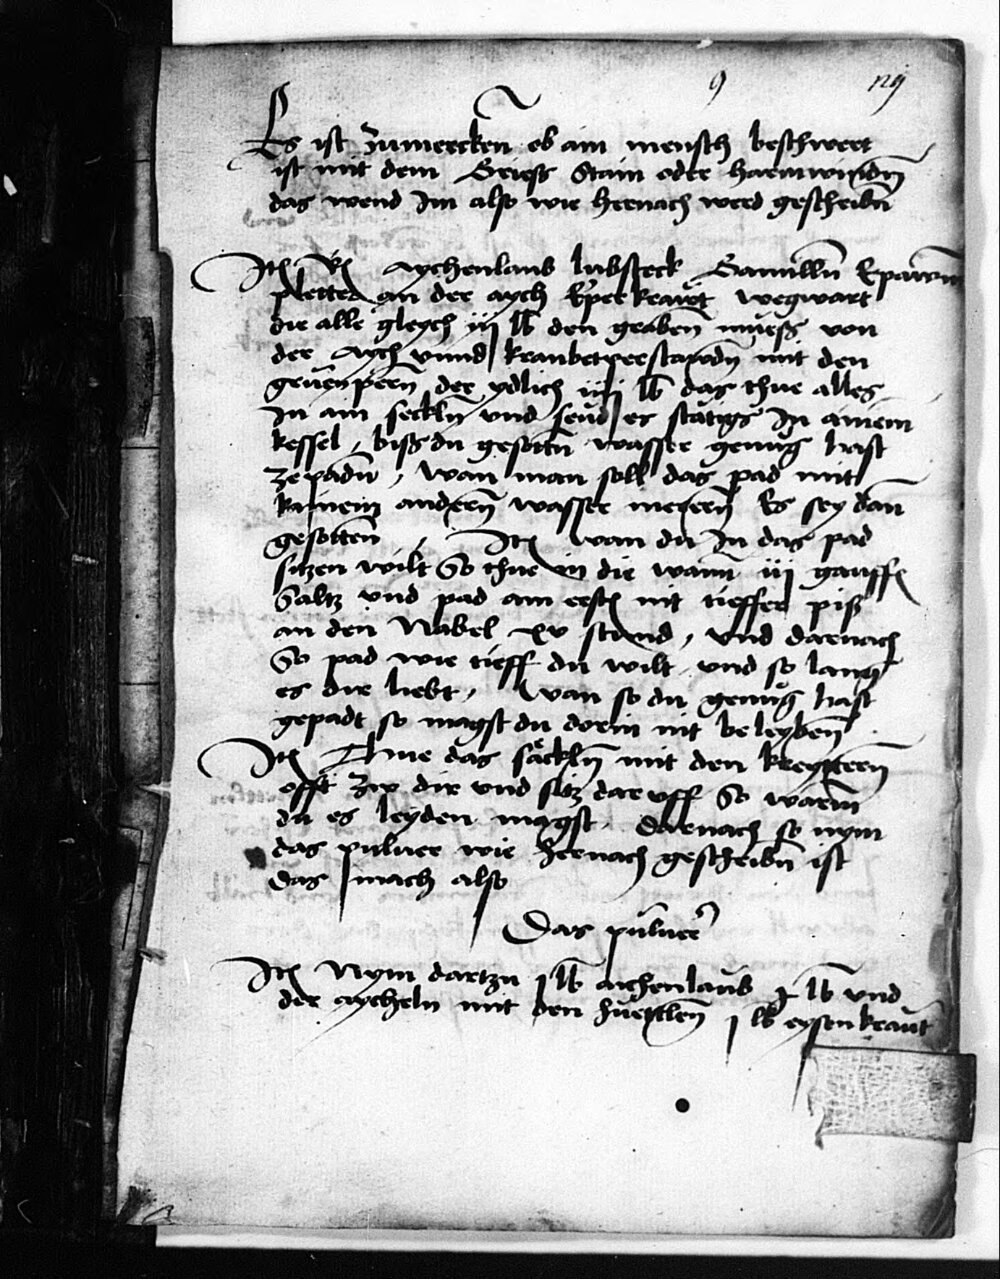 9 xij
Es ist zumercken ob ain mensch beschwert
ist mit dem Grieß Stain oder harmwinden
das wend Im also wie hernach werd geschribn
Itm Rx Aychenlaub lubsteck Gamilln
pletter an der aych Eperkraut wegwart
die alle gleych iij lb den graben mueß von
der Aych vnnd kranbetperstaudn mit den
gruen pern der ydlich iiij lb das thue alles
In ain seckln vnd seud es stätigs In ainem
kessel, biß du gesotn wasser genug hast
ze padn, wan man soll das pad mit
kainem andern wasser meren Es sey dan
gesotten, Itm wan du In das pad
sitzen wilt So thue in die wann iij gauffn
Saltz vnd pad am erstn nit tieffer piß
an den Nabel xv stund, vnd darnach
So pad wie tieff du wilt, vnd so lang
es dir liebt, wan so du genug hast
gepadt so magst du dorin nit beleyben
Itm Thue das säckln mit den kreyttern
offt zw dir vnd sitz daruff So warm
du es leyden magst. Darnach so nym
das puluer wie hernach geschribn ist
das mach also
Das puluer
Itm Nym dartzu j lb aichenlaub j lb vnd
der aycheln mit den huetlen j lb eysenkraut